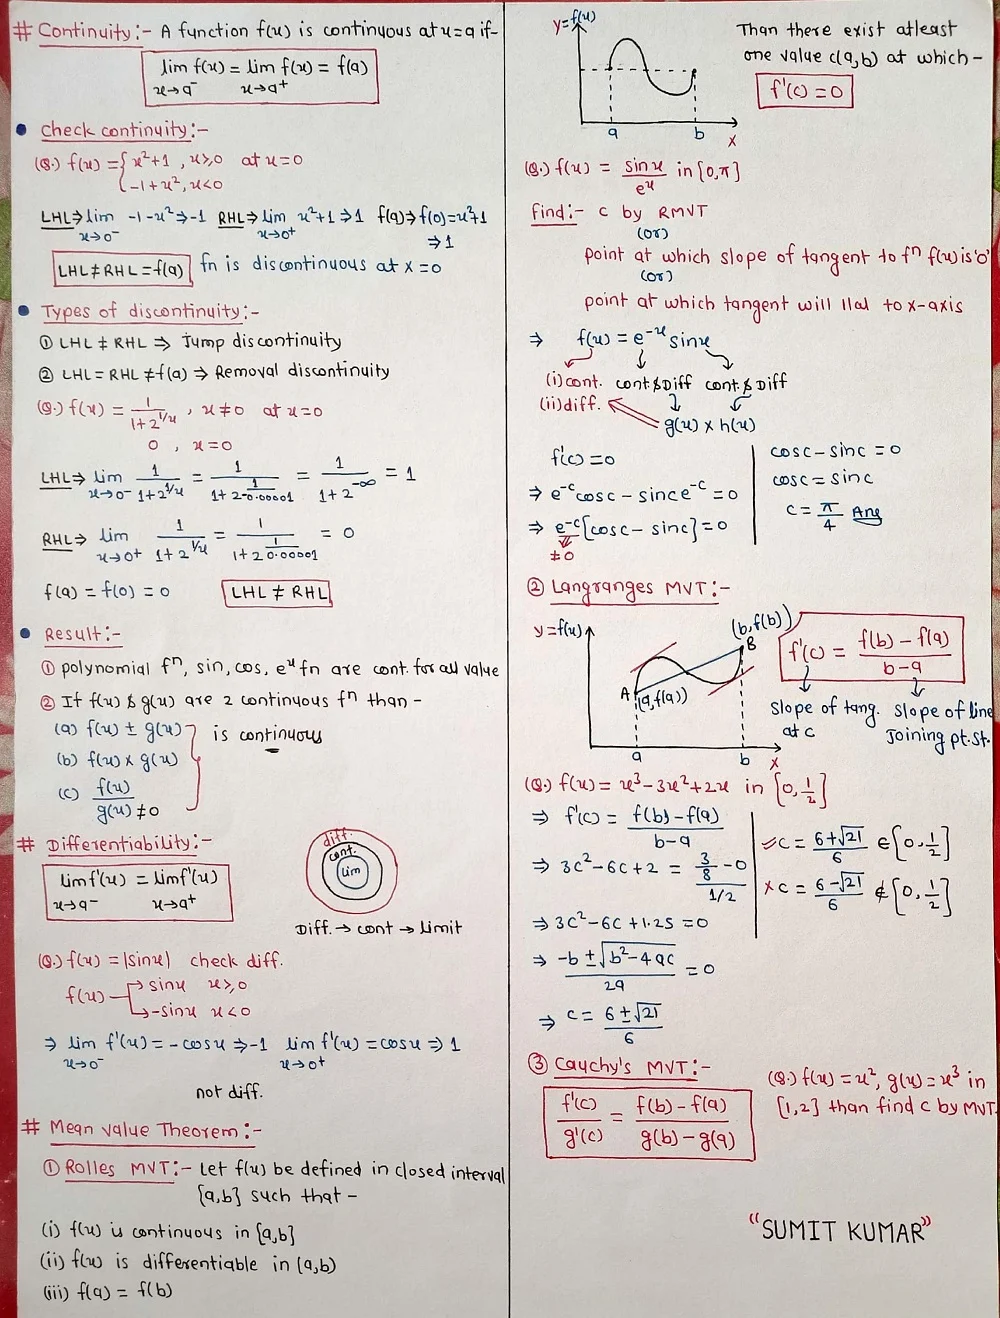 # Continuity:- A function f(x) is continuous at x=a if-
lim f(x) = lim f(x) = f(a)
x→a⁻ x→a⁺
• Check continuity:-
(Q.) f(x) = { x²+1 , x≥0 at x=0
-1+x², x<0
LHL⇒ lim -1-x² ⇒ -1 RHL⇒ lim x²+1 ⇒ 1 f(a)⇒f(0)=x²+1
x→0⁻ x→0⁺ ⇒1
LHL≠RHL=f(a) fn is discontinuous at x=0
• Types of discontinuity:-
① LHL ≠ RHL ⇒ Jump discontinuity
② LHL = RHL ≠ f(a) ⇒ Removal discontinuity
(Q.) f(x) = 1/(1+2^(1/x)) , x≠0 at x=0
0 , x=0
LHL⇒ lim 1/(1+2^(1/x)) = 1/(1+2^(1/-0.00001)) = 1/(1+2^(-∞)) = 1
x→0⁻
RHL⇒ lim 1/(1+2^(1/x)) = 1/(1+2^(1/0.00001)) = 0
x→0⁺
f(a) = f(0) = 0 LHL ≠ RHL
• Result:-
① polynomial fⁿ, sin, cos, eˣ fn are cont. for all value
② If f(x) & g(x) are 2 continuous fⁿ than -
(a) f(x) ± g(x)
(b) f(x) x g(x)
(c) f(x)/g(x)≠0
is continuous
# Differentiability:-
lim f'(x) = lim f'(x)
x→a⁻ x→a⁺
diff.
cont.
Lim
Diff. → cont → Limit
(Q.) f(x) = |sinx| check diff.
f(x) → sinx x≥0
→ -sinx x<0
⇒ lim f'(x) = -cosx ⇒ -1 lim f'(x) = cosx ⇒ 1
x→0⁻ x→0⁺
not diff.
# Mean value Theorem:-
① Rolles MVT:- Let f(x) be defined in closed interval
[a,b] such that -
(i) f(x) is continuous in [a,b]
(ii) f(x) is differentiable in (a,b)
(iii) f(a) = f(b)
y=f(x)
a b
x
Than there exist atleast
one value c(a,b) at which -
f'(c) = 0
(Q.) f(x) = sinx/eˣ in [0,π]
find:- c by RMVT
(or)
point at which slope of tangent to fⁿ f(x) is '0'
(or)
point at which tangent will llal to x-axis
⇒ f(x) = e⁻ˣ sinx
(i) cont. cont & Diff cont & Diff
(ii) diff.
g(x) x h(x)
f'(c) = 0
⇒ e⁻ᶜcosc - since⁻ᶜ = 0
⇒ e⁻ᶜ[cosc - sinc] = 0
≠0
cosc - sinc = 0
cosc = sinc
c = π/4 Ans
② Langranges MVT:-
y=f(x)
(b,f(b))
B
A (a,f(a))
a b
x
f'(c) = (f(b) - f(a))/(b-a)
Slope of tang. Slope of line
at c Joining pt. st.
(Q.) f(x) = x³-3x²+2x in [0,1/2]
⇒ f'(c) = (f(b)-f(a))/(b-a)
⇒ 3c²-6c+2 = (3/8 - 0)/(1/2)
⇒ 3c²-6c+1.25=0
⇒ (-b ± √(b²-4ac))/2a = 0
⇒ c = (6 ± √21)/6
c = (6+√21)/6 ∈ [0,1/2]
× c = (6-√21)/6 ∉ [0,1/2]
③ Cauchy's MVT:-
f'(c)/g'(c) = (f(b)-f(a))/(g(b)-g(a))
(Q.) f(x)=x², g(x)=x³ in
[1,2] than find c by MVT.
"SUMIT KUMAR"